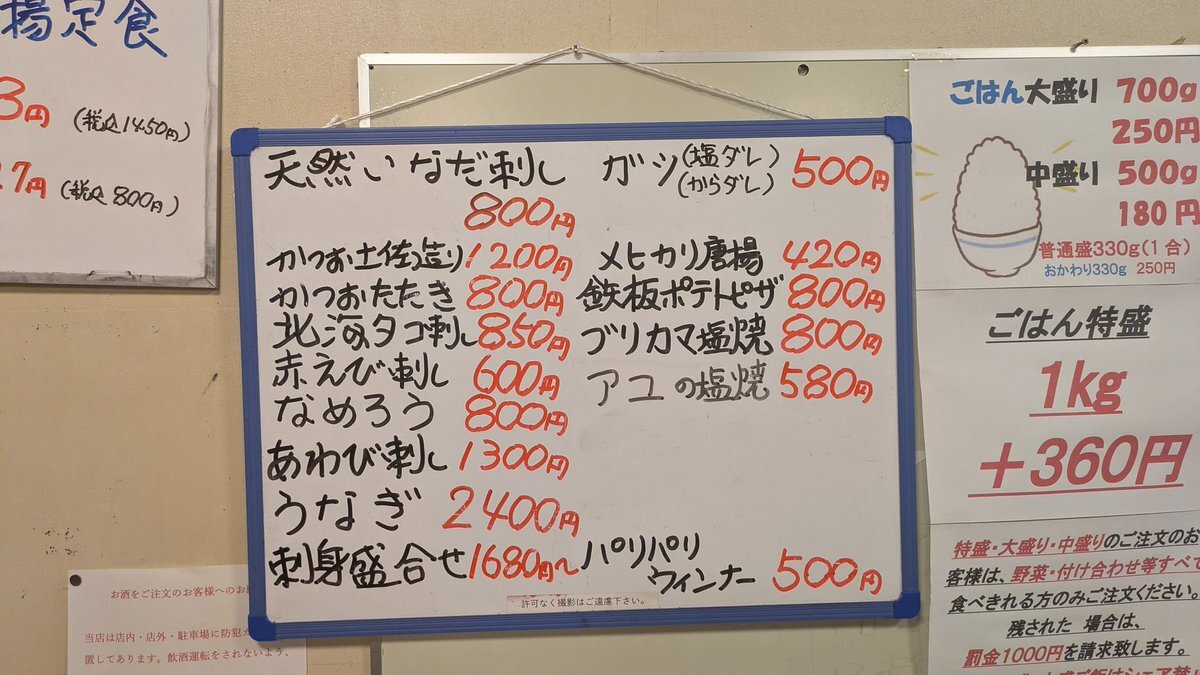 揚定食
3円 (税込1450円)
27円 (税込800円)
天然いなだ刺し
800円
かつお土佐造り 1200円
かつおたたき 800円
北海タコ刺し 850円
赤えび刺し 600円
なめろう 800円
あわび刺し 1300円
うなぎ 2400円
刺身盛合せ 1680円〜
ガツ (塩ダレ) (からダレ) 500円
メヒカリ唐揚 420円
鉄板ポテトピザ 800円
ブリカマ塩焼 800円
アユの塩焼 580円
パリパリ
ウィンナー 500円
許可なく撮影はご遠慮下さい。
ごはん大盛り 700g
250円
中盛り 500g
180円
普通盛330g(1合)
おかわり330g 250円
ごはん特盛
1kg
+360円
特盛・大盛り・中盛りのご注文のお
客様は、野菜・付け合わせ等すべて
食べきれる方のみご注文ください。
残された 場合は、
罰金1000円を請求致します。
お酒をご注文のお客様へのお
当店は店内・店外・駐車場に防犯カ
置してあります。飲酒運転をされないよう、